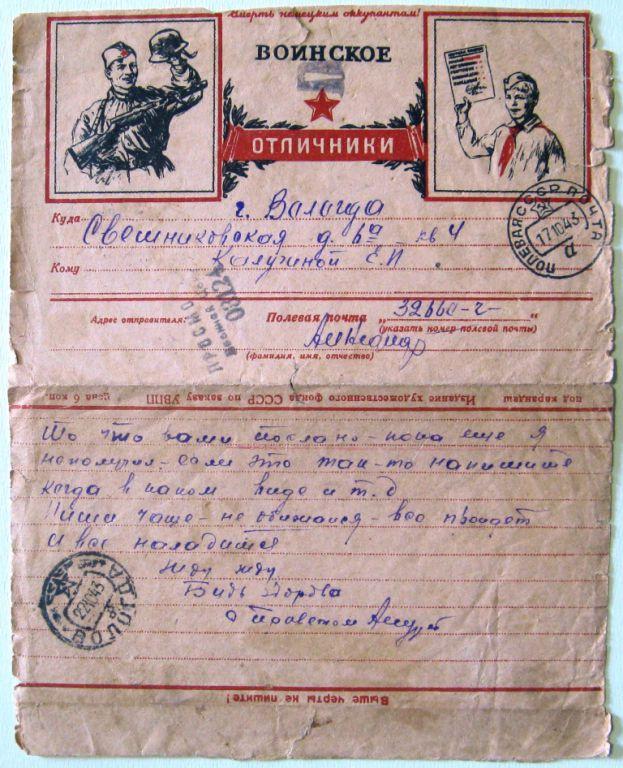 Смерть немецким оккупантам!
ВОИНСКОЕ
ОТЛИЧНИКИ
Куда г. Вологда
Свешниковская д 6а кв 4
Кому Калугиной Е.П
ПОЛЕВАЯ ПОЧТА СССР
17 10 43
ПРОСМОТРЕНО
Военной Цензурой
Адрес отправителя:
Полевая почта „32660-ч-“
(указать номер полевой почты)
Александр
(фамилия, имя, отчество)
под карандаш Издание художественного фонда СССР по заказу УВПП Цена 6 коп.
То что вами послано - пока еще я
не получил. если это так - то напишите
когда в каком виде и т.д
Пиши чаще - не обижайся - все пройдет
и все наладится
Жду жду
Будь здорова
С Приветом
ВОЛОГДА
22 10 43
Выше черты не пишите!